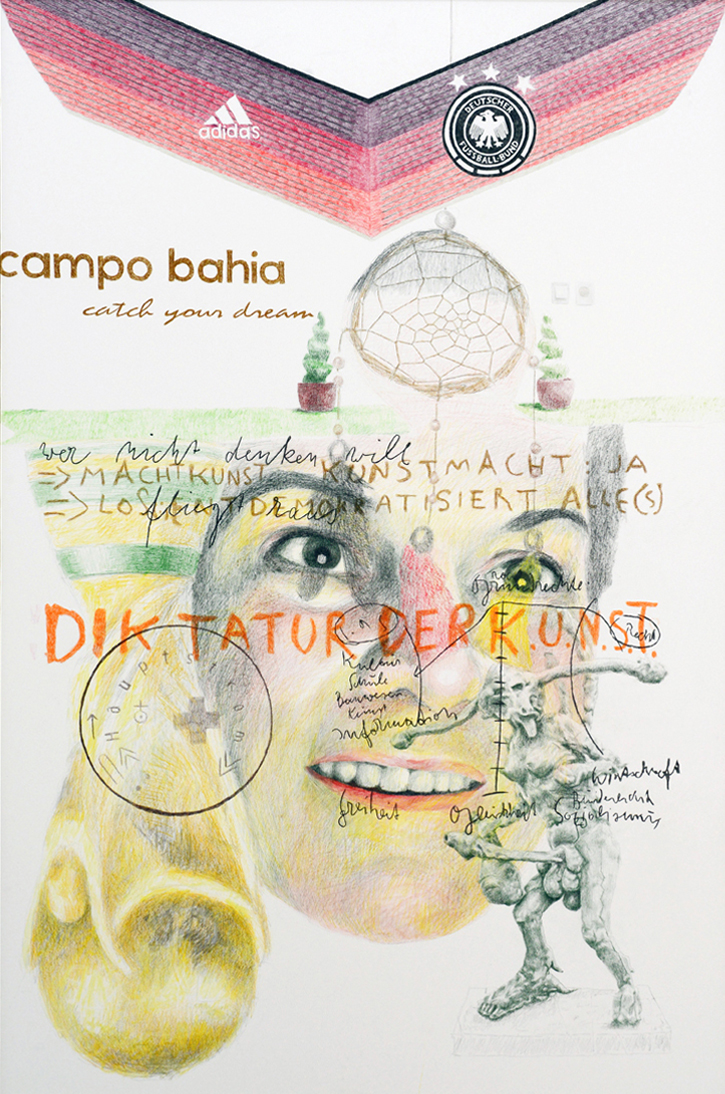 adidas
DEUTSCHER
FUSSBALL-BUND
campo bahia
catch your dream
wer nicht denken will
=> MACHTKUNST KUNSTMACHT: JA
=> LOS DEMOKRATISIERT ALLE(S)
fliegt raus
DIKTATUR DER K.U.N.S.T.
Hauptstrom
Recht
Kultur
Schule
Bauwesen
Kunst
Information
Wirtschaft
Freiheit
Gleichheit